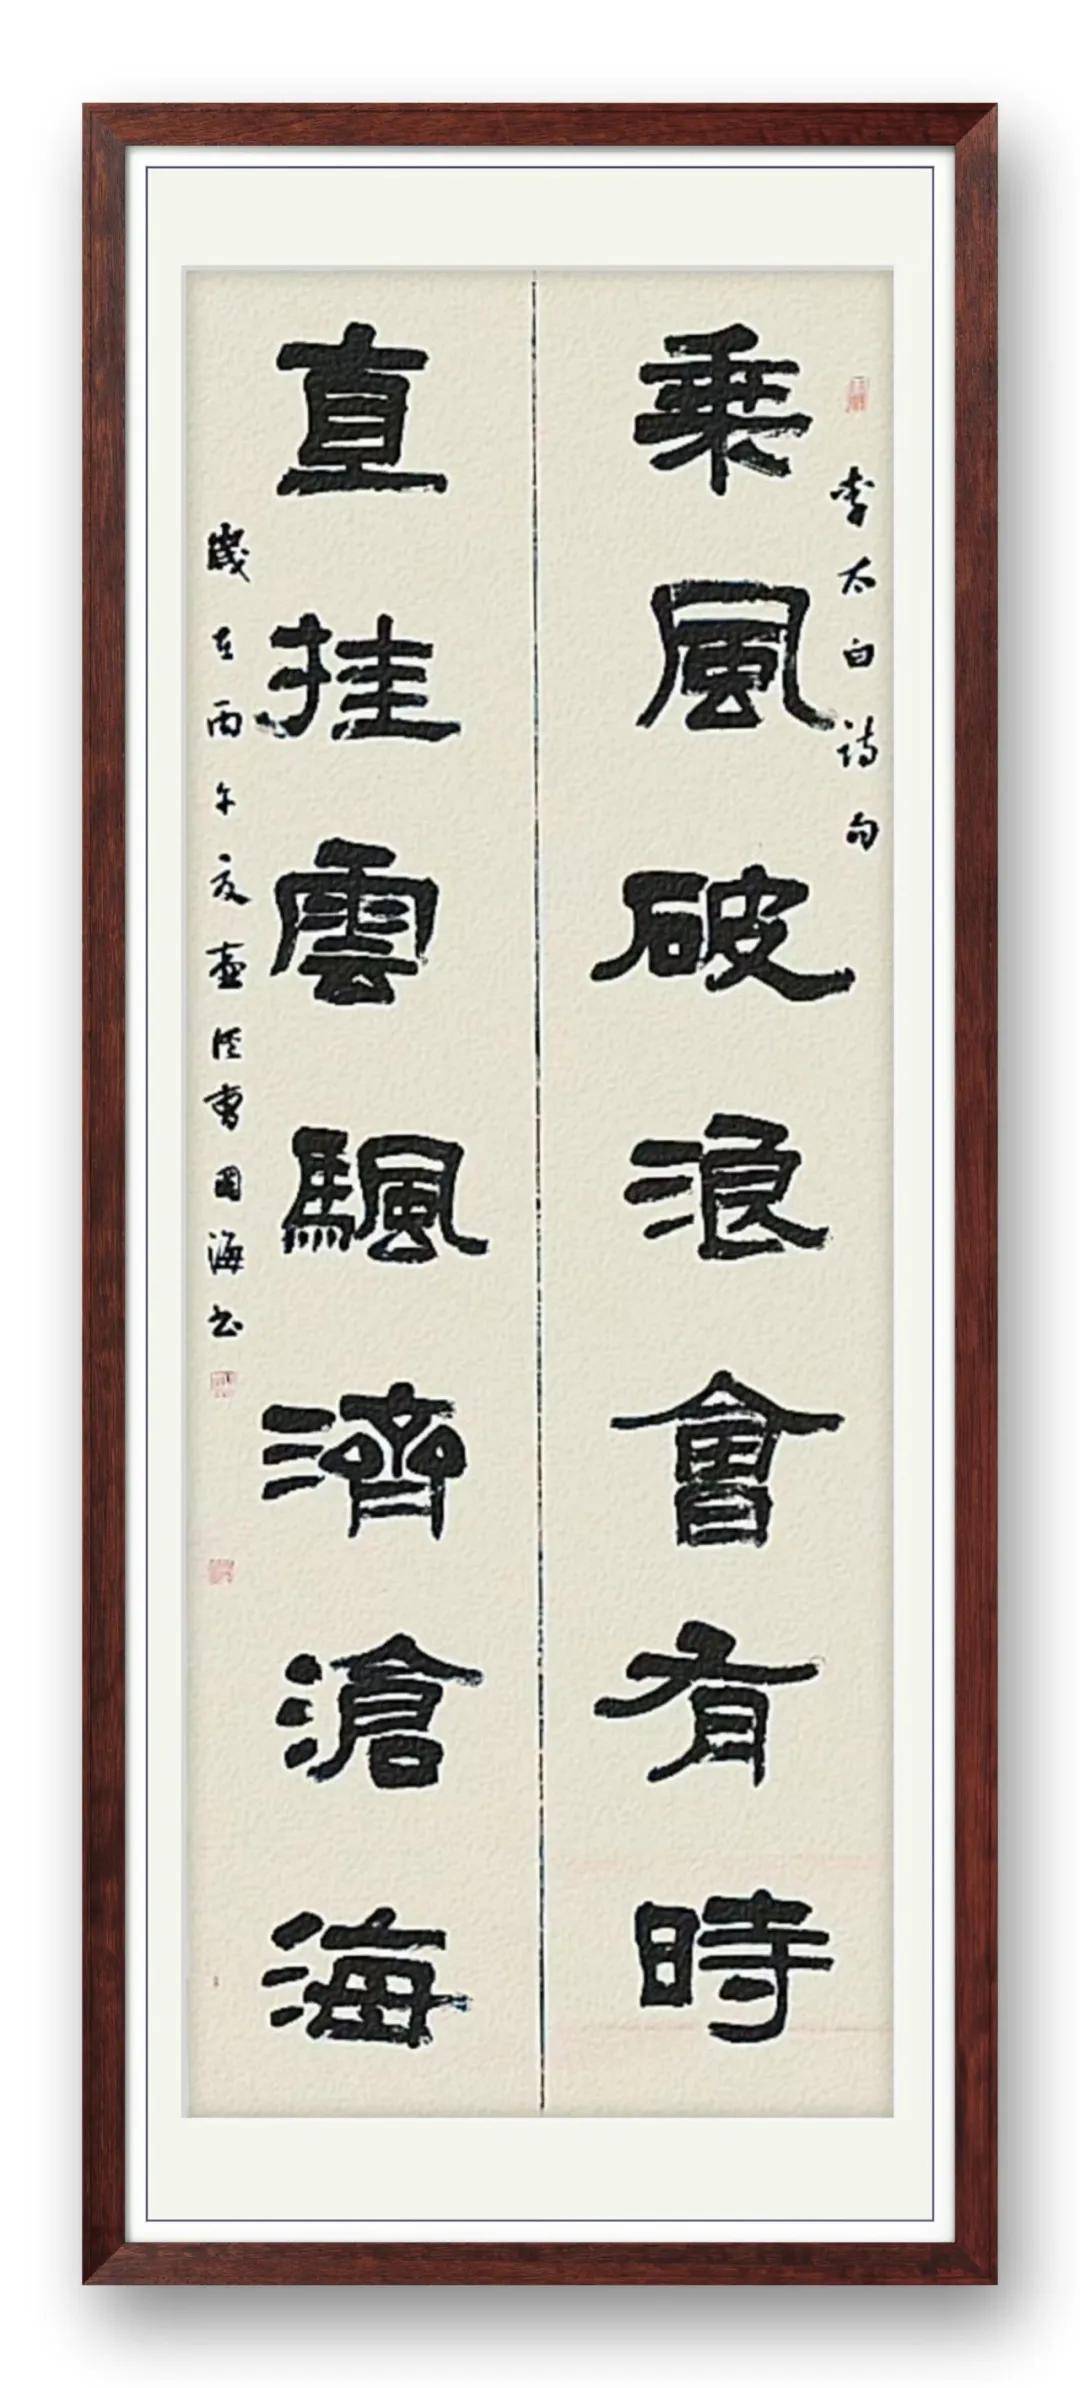 李太白詩句
乘風破浪會有時
直挂雲颿濟滄海
歲在丙午夏壺曹國海书